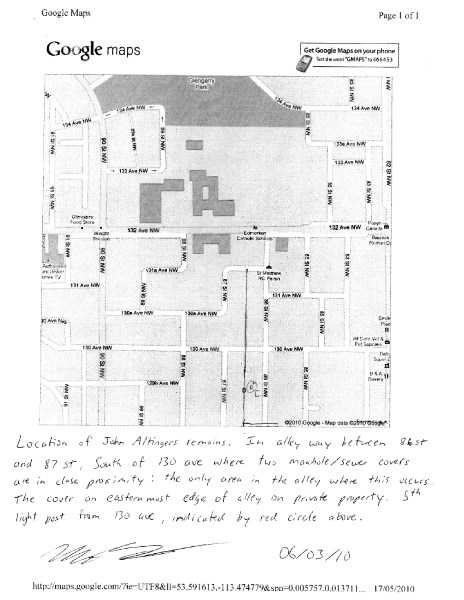 Google Maps
Page 1 of 1
Google maps
Get Google Maps on your phone
Text the word "GMAPS" to 466453
Glengarry Park
134 Ave NW
134 Ave NW
134 Ave NW
133a Ave NW
133 Ave NW
133 Ave NW
90 St NW
88 St NW
85 St NW
82 St NW
Glengarry Food Store
132 Ave NW
Edmonton Catholic Schools
132 Ave NW
Weight
131a Ave NW
St Matthew RC Parish
131 Ave NW
131 Ave NW
130a Ave NW
130a Ave NW
130 Ave NW
130 Ave NW
130 Ave NW
129b Ave NW
©2010 Google - Map data ©2010 Google
Location of John Altingers remains. In alley way between 86st
and 87 st, South of 130 ave where two manhole/sewer covers
are in close proximity: the only area in the alley where this occurs.
The cover on easternmost edge of alley on private property. 5th
light post from 130 ave, indicated by red circle above.
06/03/10
http://maps.google.com/?ie=UTF8&ll=53.591613,-113.474779&spn=0.005757,0.013711... 17/05/2010